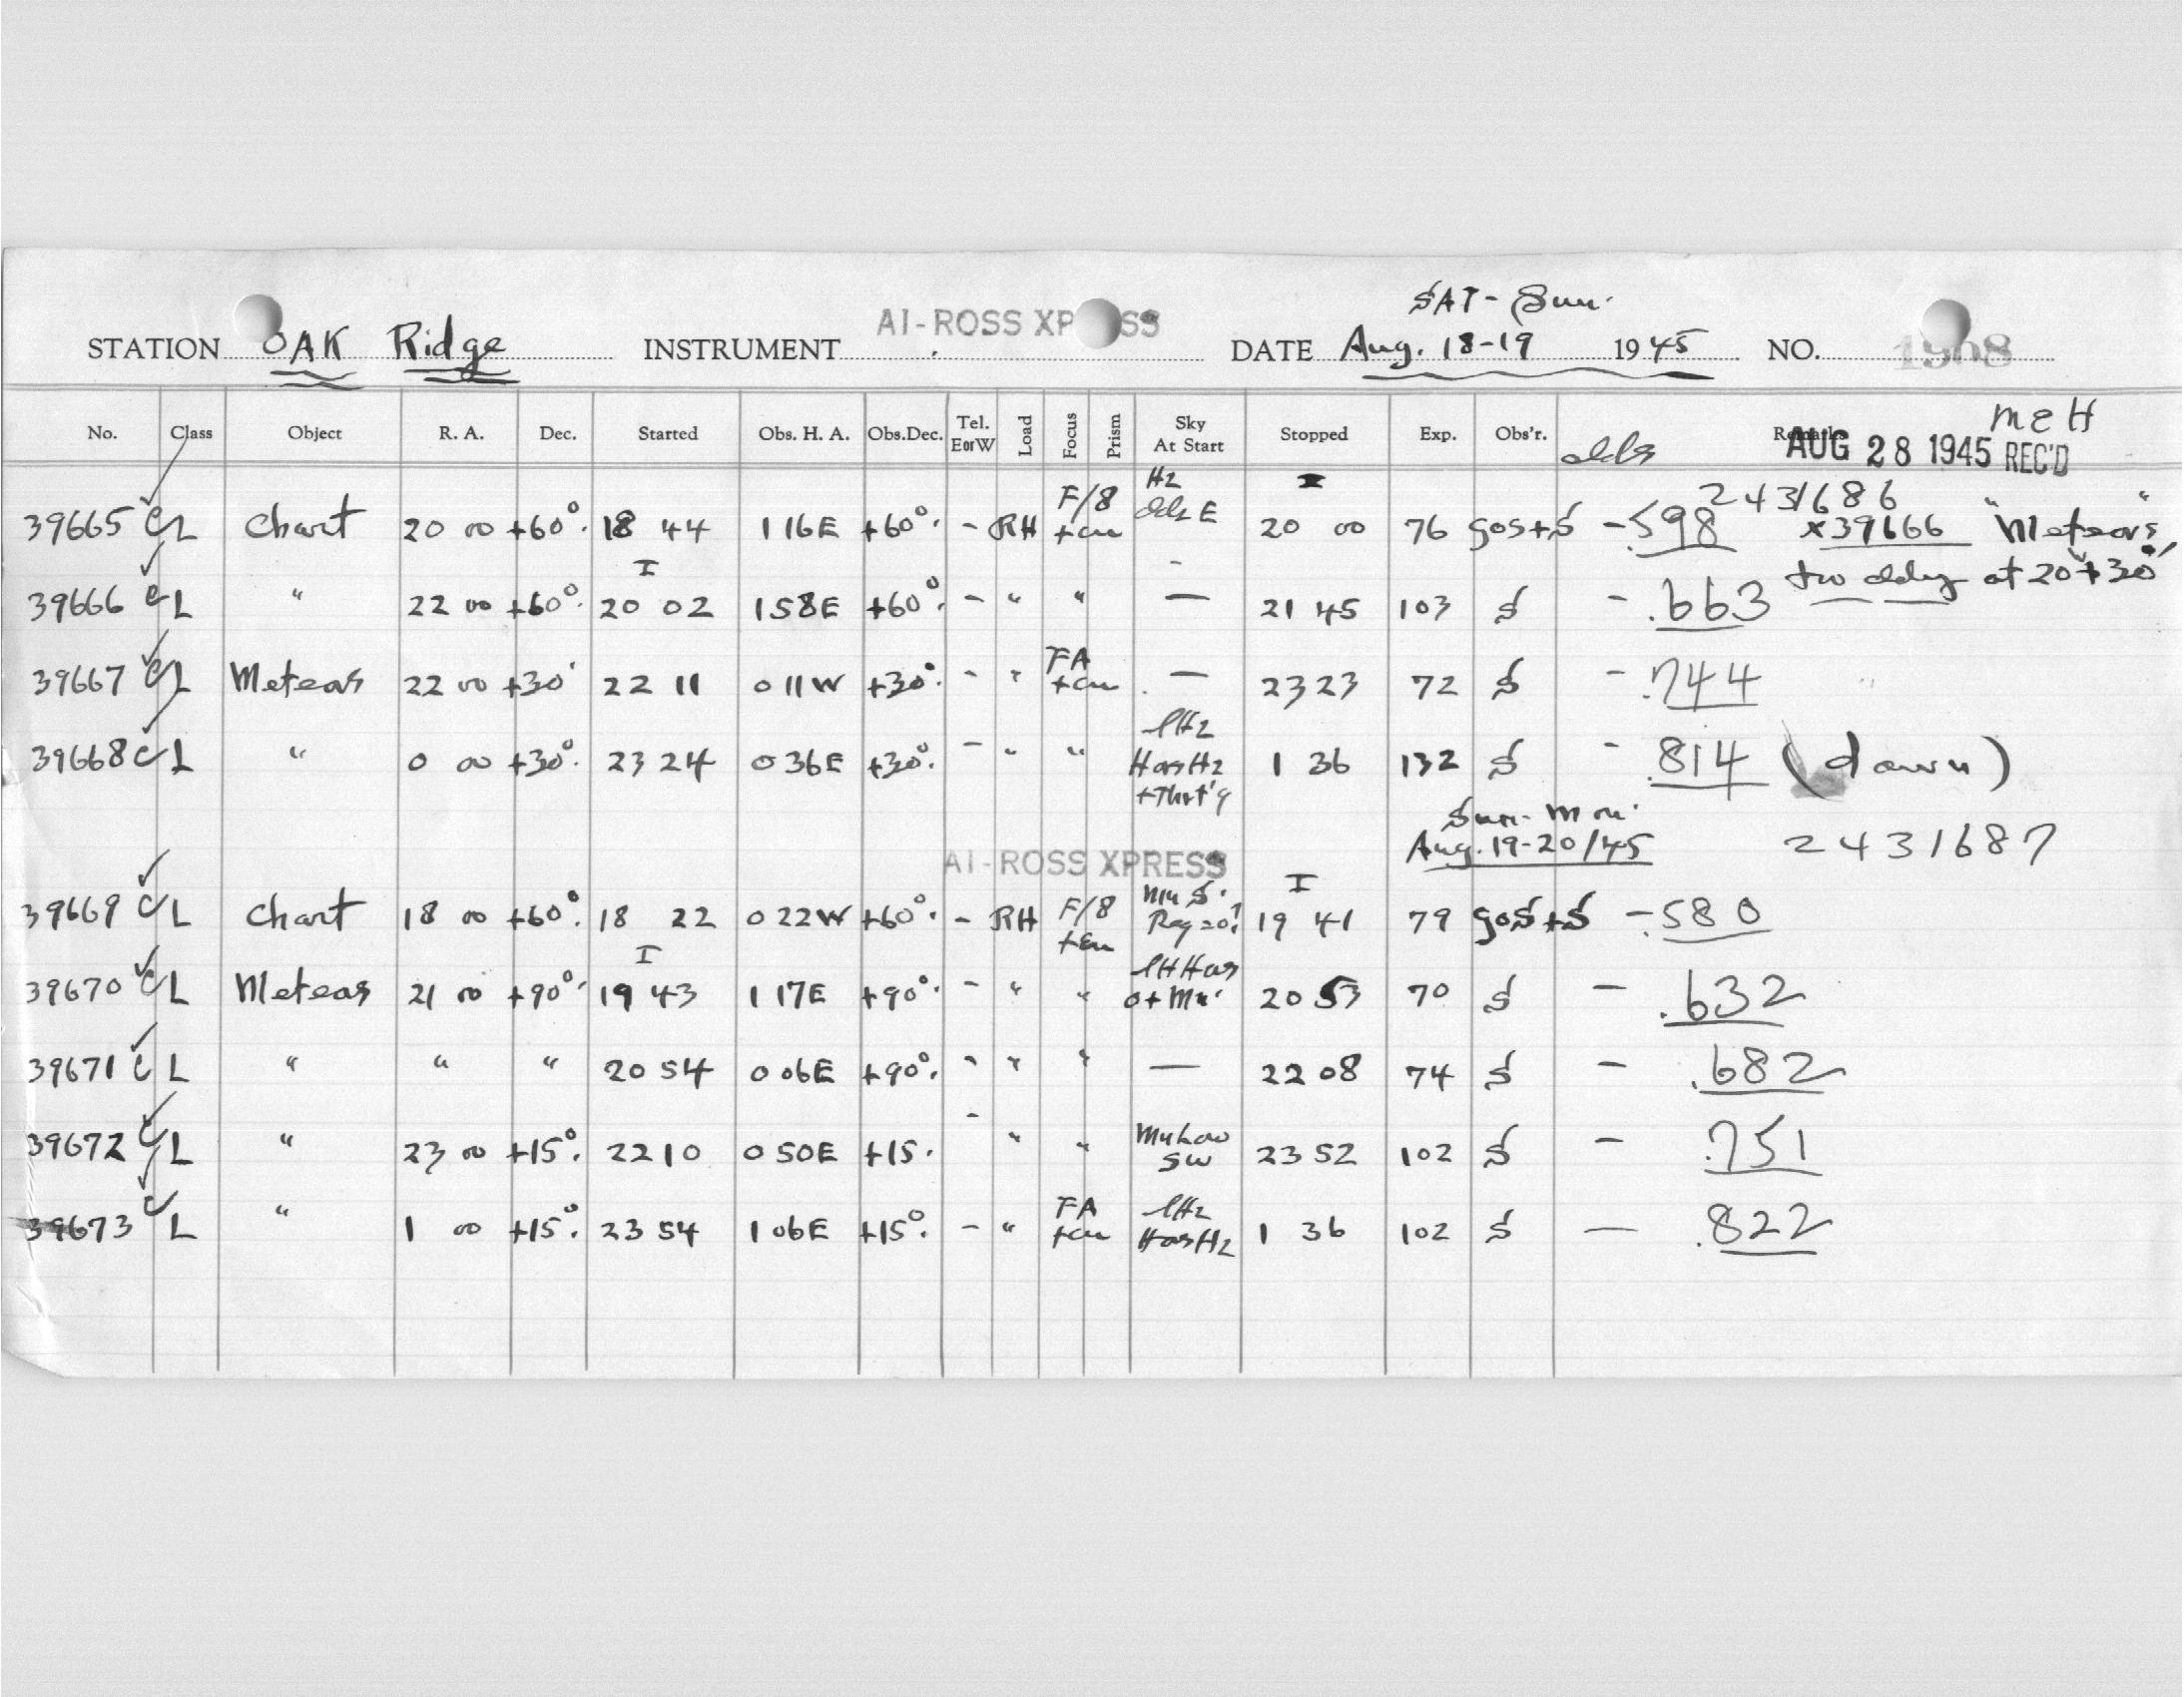 SAT - Sun.
STATION OAK Ridge INSTRUMENT AI-ROSS XPRESS DATE Aug. 18-19 1945 NO. 1908
No. Class Object R. A. Dec. Started Obs. H. A. Obs.Dec. Tel. E or W Load Focus Prism Sky At Start Stopped Exp. Obs'r. Remarks
MEH
AUG 28 1945 REC'D
2431686
39665 C L Chart 20 00 +60°. 18 44 1 16E +60°. - RH F/8 Hz E 20 00 76 gos+S - .598 x39666 "Meteors"
at 20 + 30°
I
39666 C L " 22 00 +60°. 20 02 1 58E +60°. - " " — 21 45 103 S - .663
39667 C L Meteors 22 00 +30° 22 11 0 11W +30°. - " FA — 23 23 72 S - .744
39668 C L " 0 00 +30°. 23 24 0 36E +30°. - " " lHz HorHz 1 36 132 S - .814 (dawn)
Sun - Mon.
AI-ROSS XPRESS Aug. 19-20/45 2431687
I
39669 C L Chart 18 00 +60°. 18 22 0 22W +60°. - RH F/8 19 41 79 goS+S - .580
I
39670 C L Meteors 21 00 +90°. 19 43 1 17E +90°. - " " 20 53 70 S - .632
39671 C L " " " 20 54 0 06E +90°. - " " — 22 08 74 S - .682
39672 C L " 23 00 +15°. 22 10 0 50E +15. - " " SW 23 52 102 S - .751
39673 C L " 1 00 +15°. 23 54 1 06E +15°. - " FA lHz HorHz 1 36 102 S — .822